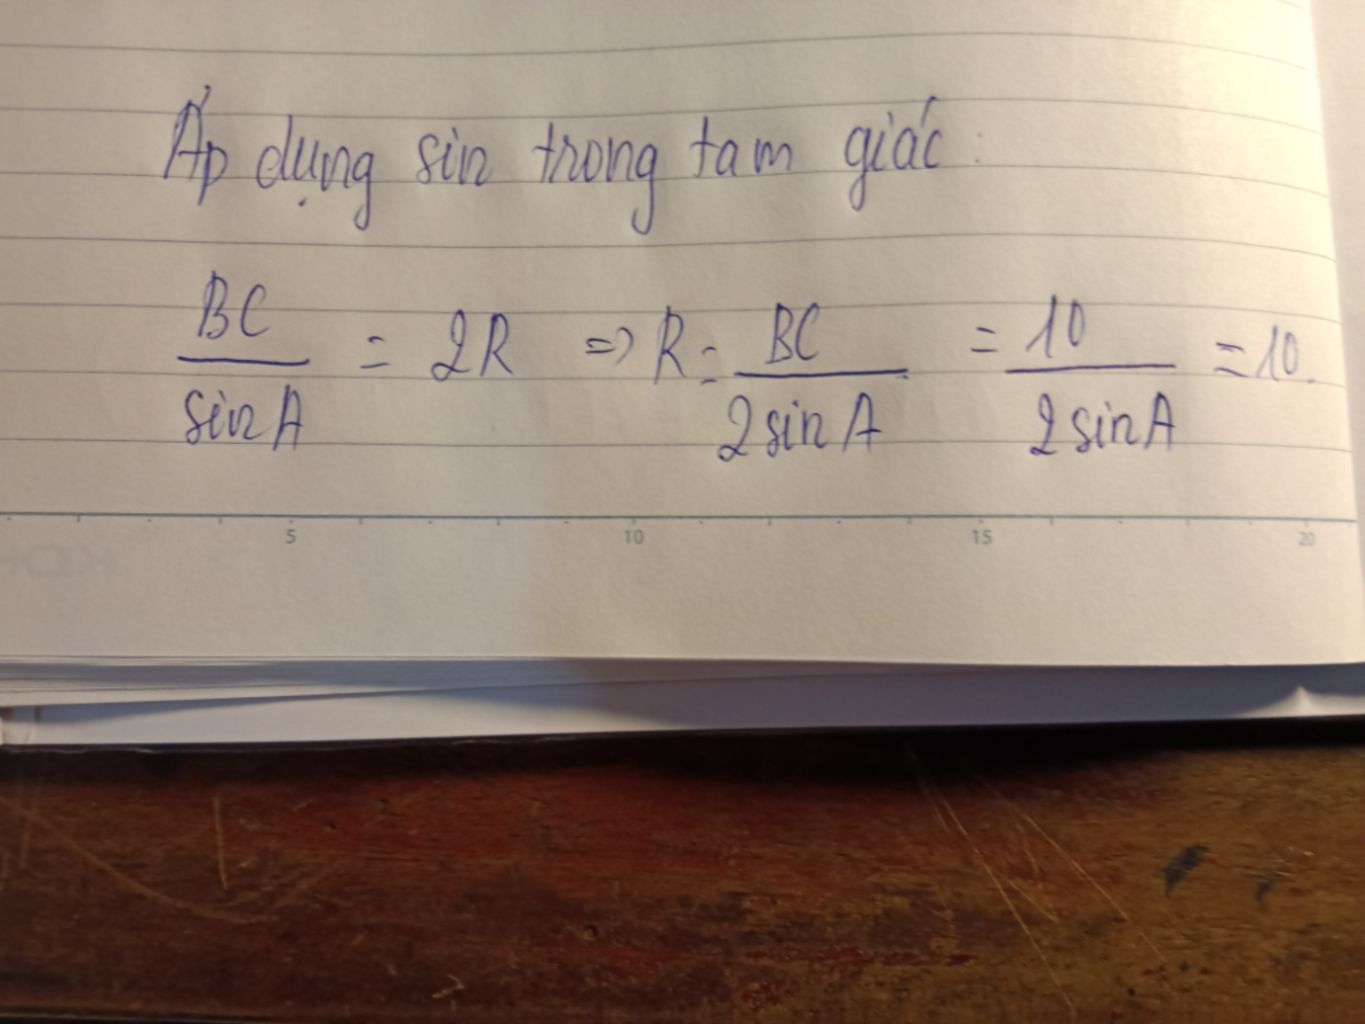 Áp dụng sin trong tam giác:
BC/sin A = 2R => R = BC/2 sin A = 10/2 sin A = 10.
5 10 15 20